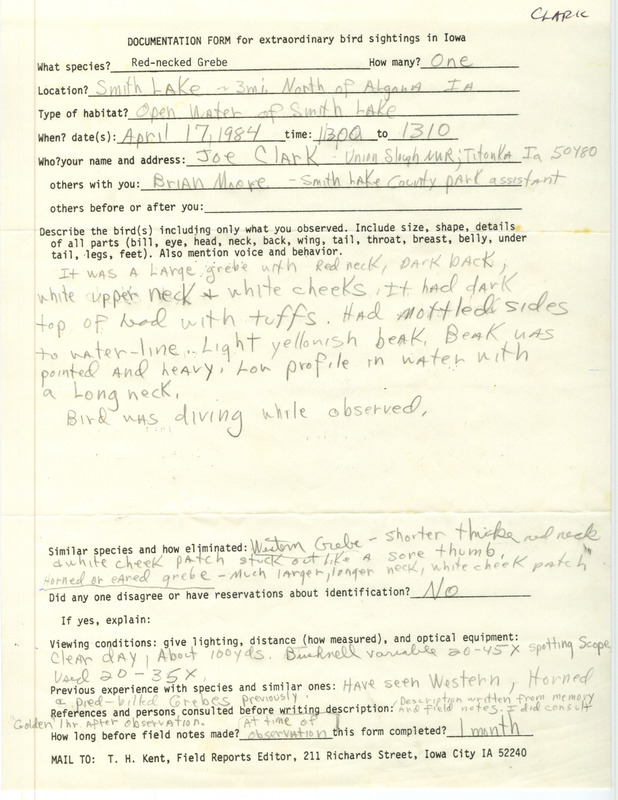 CLARK
DOCUMENTATION FORM for extraordinary bird sightings in Iowa
What species? Red-necked Grebe How many? One
Location? Smith Lake ~ 3mi. North of Algona IA
Type of habitat? Open Water of Smith Lake
When? date(s): April 17, 1984 time: 1300 to 1310
Who?your name and address: Joe Clark - Union Slough NWR; Titonka Ia 50480
others with you: Brian Moore - Smith Lake County park assistant
others before or after you:
Describe the bird(s) including only what you observed. Include size, shape, details
of all parts (bill, eye, head, neck, back, wing, tail, throat, breast, belly, under
tail, legs, feet). Also mention voice and behavior.
It was a Large grebe with Red neck, Dark back,
white upper neck & white cheeks. It had dark
top of head with tuffs. Had mottled sides
to water-line. Light yellonish beak. Beak was
pointed and heavy. Low profile in water with
a Long neck.
Bird was diving while observed.
Similar species and how eliminated: Western Grebe - shorter thicke red neck
& white cheek patch stuck out like a sore thumb.
Horned or eared grebe - Much larger, longer neck, white cheek patch"
Did any one disagree or have reservations about identification? No
If yes, explain:
Viewing conditions: give lighting, distance (how measured), and optical equipment:
Clear day, About 100yds. Bushnell variable 20-45x spotting Scope
Used 20-35x.
Previous experience with species and similar ones: Have seen Western, Horned
& pied-billed Grebes previously.
References and persons consulted before writing description: Description written from memory and field notes. I did consult
"Golden 1hr. after observation.
How long before field notes made? At time of observation this form completed? 1 month
MAIL TO: T. H. Kent, Field Reports Editor, 211 Richards Street, Iowa City IA 52240